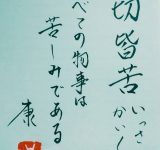 切皆苦
いっさ
かい
べての物事は
苦しみである
康